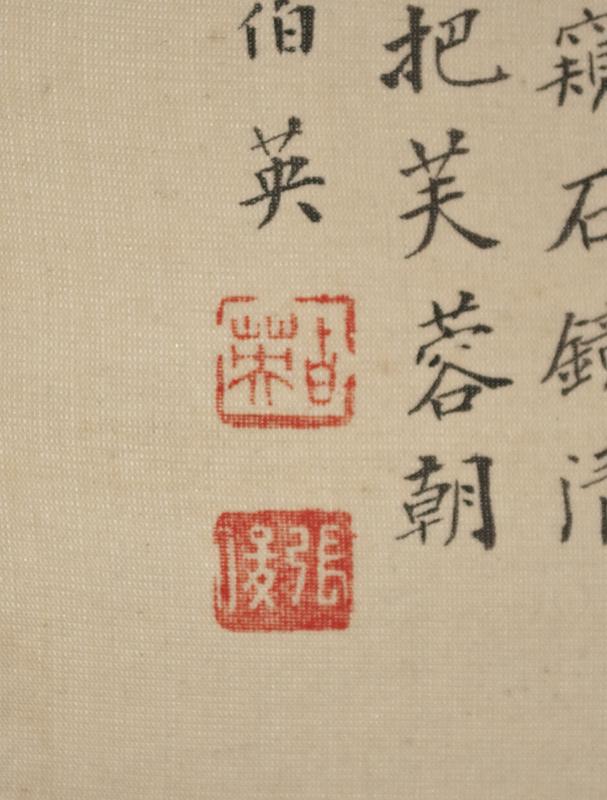 窺石鏡清
把芙蓉朝
伯英
張